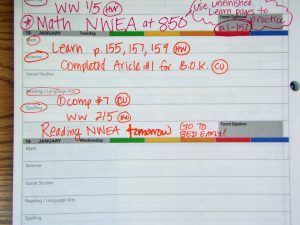 WW 45 HW
Math NWEA at 850
use unfinished
Learn pages to
practice.
p.1-152
Parent Signature
15 JANUARY Tuesday
Math
Learn p. 155, 157, 159 HW
Science
Completed Article #1 for B.O.K. CU
Social Studies
Reading / Language Arts
Dcomp #7 CU
Spelling
WW 215
Reading NWEA tomorrow GO TO BED EARLY!
Parent Signature
16 JANUARY Wednesday
Math
Science
Social Studies
Reading / Language Arts
Spelling